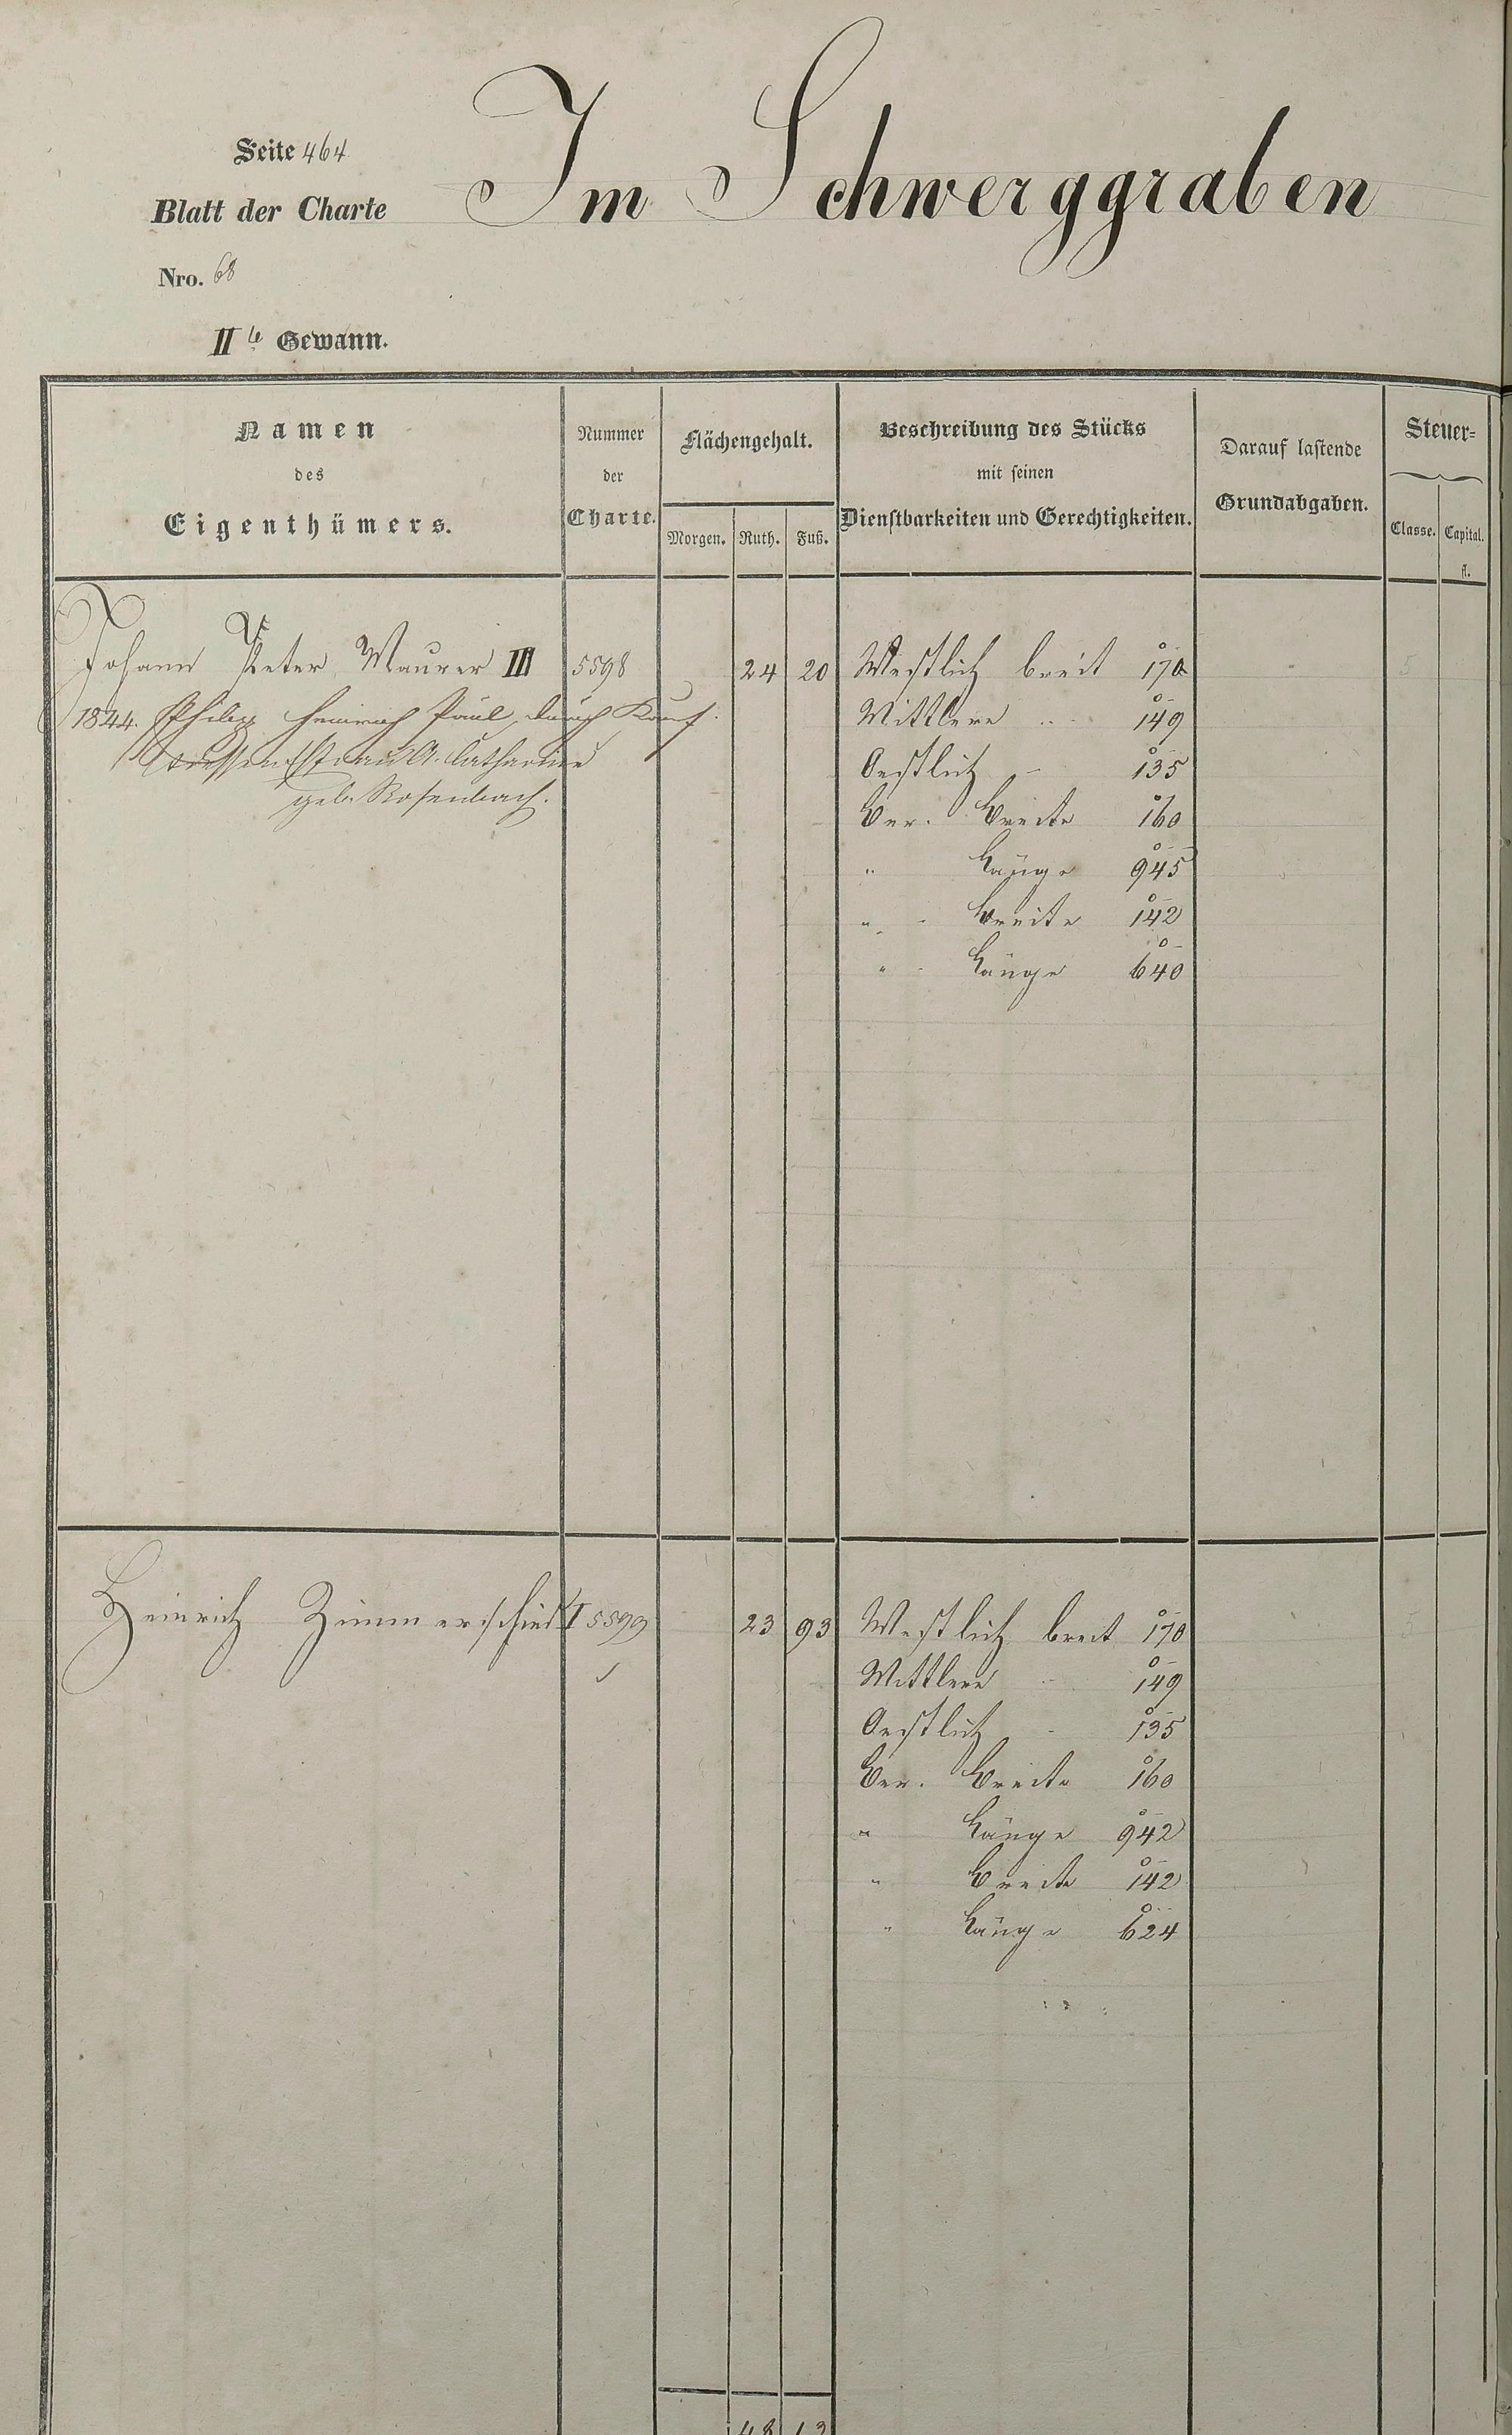 Seite 464
Im Schwerggraben
Blatt der Charte
Nro. 68
IIte Gewann.
Namen
des
Eigenthümers.
Nummer
der
Charte.
Flächengehalt.
Morgen. Ruth. Fuß.
Beschreibung des Stücks
mit seinen
Dienstbarkeiten und Gerechtigkeiten.
Darauf lastende
Grundabgaben.
Steuer=
Classe. Capital.
fl.
Johann Peter Maurer III 5598 24 20 Westlich breit 170 5
1844. Philipp Heinrich Paul, durch Kauf. Mittlere " 149
dessen Ehefrau A. Catharine Oestlich - 135
geb. Rosenbach. Ber. Breite 160
" Länge 945
" Breite 142
" Länge 640
Heinrich Zimmerschied I 5599 23 93 Westlich breit 170 5
Mittlere - 149
Oestlich - 135
Ber. Breite 160
" Länge 942
" Breite 142
" Länge 624
48 13